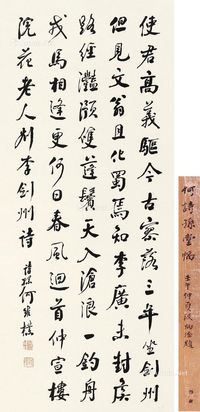 使君高義驅今古寥落三年坐劍州
但見文翁且化蜀焉知李廣未封侯
路經灩澦雙蓬鬢天入滄浪一釣舟
戎馬相逢更何日春風迴首仲宣樓
浣花老人別李劍州詩 詩孫何維樸
何詩孫堂幅